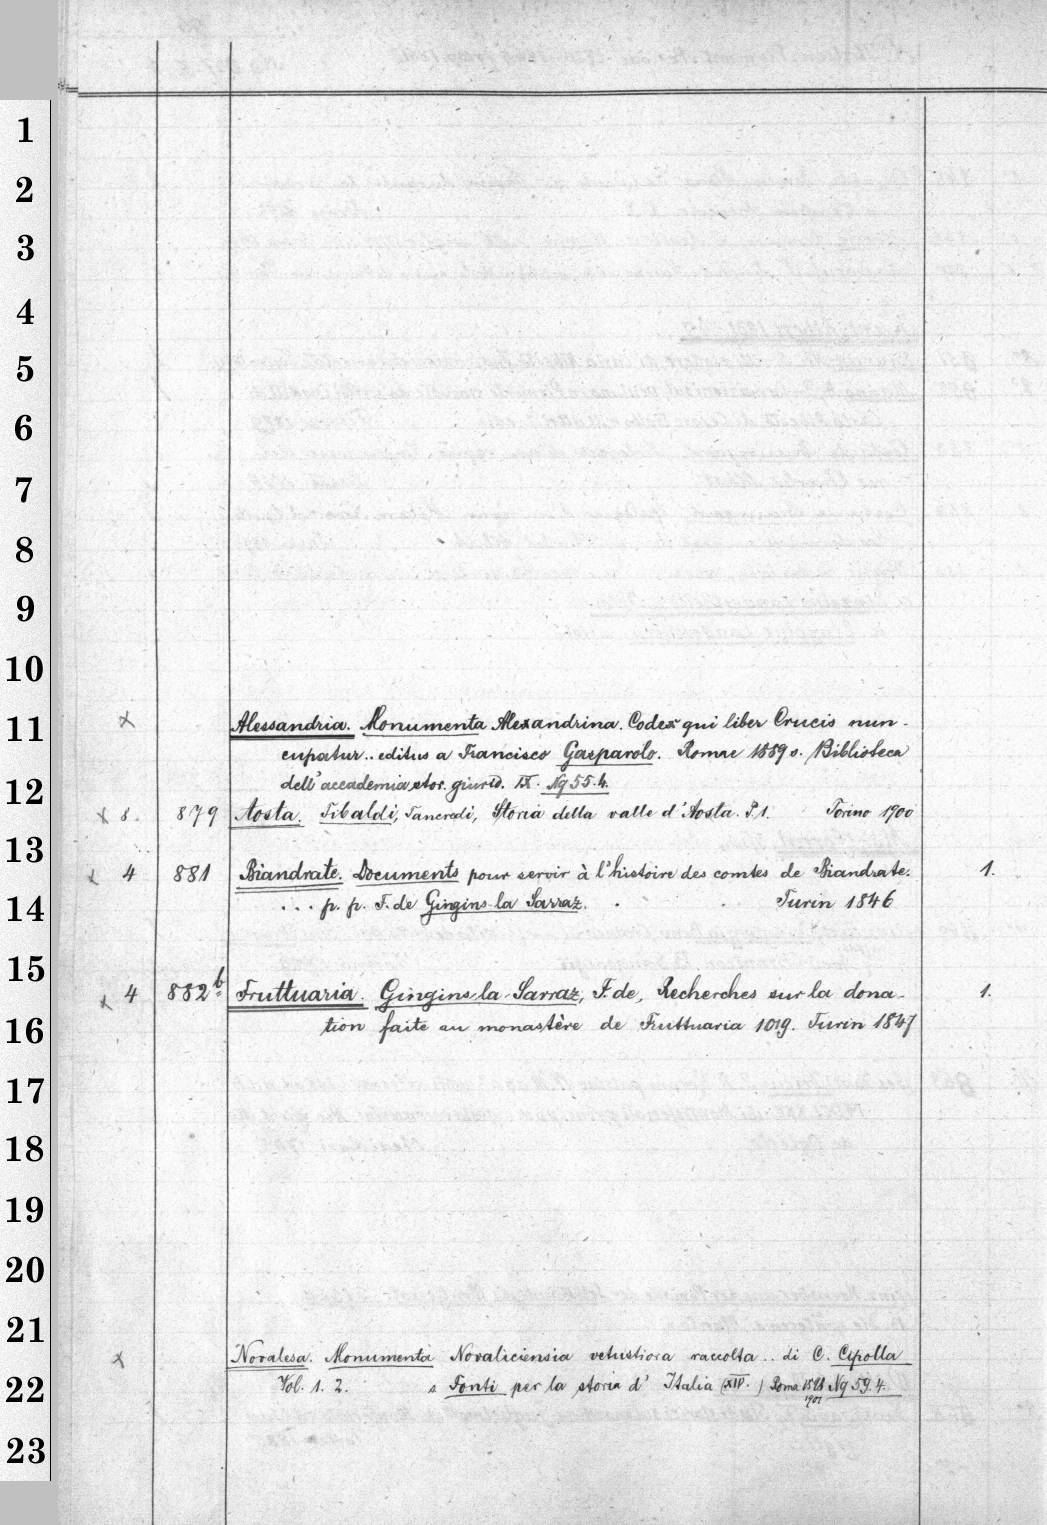 1
2
3
4
5
6
7
8
9
10
11
12
13
14
15
16
17
18
19
20
21
22
23
x Alessandria. Monumenta Alexandrina. Codex qui liber Crucis nun-
cupatur .. editus a Francisco Gasparolo. Romae 1889 s. Biblioteca
dell'accademia stor. giurid. IX. Ng 55.4.
x 8. 879 Aosta. Tibaldi, Tancredi, Storia della valle d'Aosta. P.1. Torino 1900
x 4 881 Biandrate. Documents pour servir à l'histoire des comtes de Biandrate. 1.
... p. p. F. de Gingins-la Sarraz. Turin 1846
x 4 882b Fruttuaria. Gingins-la-Sarraz, F. de, Recherches sur la dona- 1.
tion faite au monastère de Fruttuaria 1019. Turin 1847
x Novalesa. Monumenta Novaliciensia vetustiora raccolta .. di C. Cipolla
Vol. 1. 2. s Fonti per la storia d' Italia (XIV. ) Roma 1898 Ng 59.4.
1901